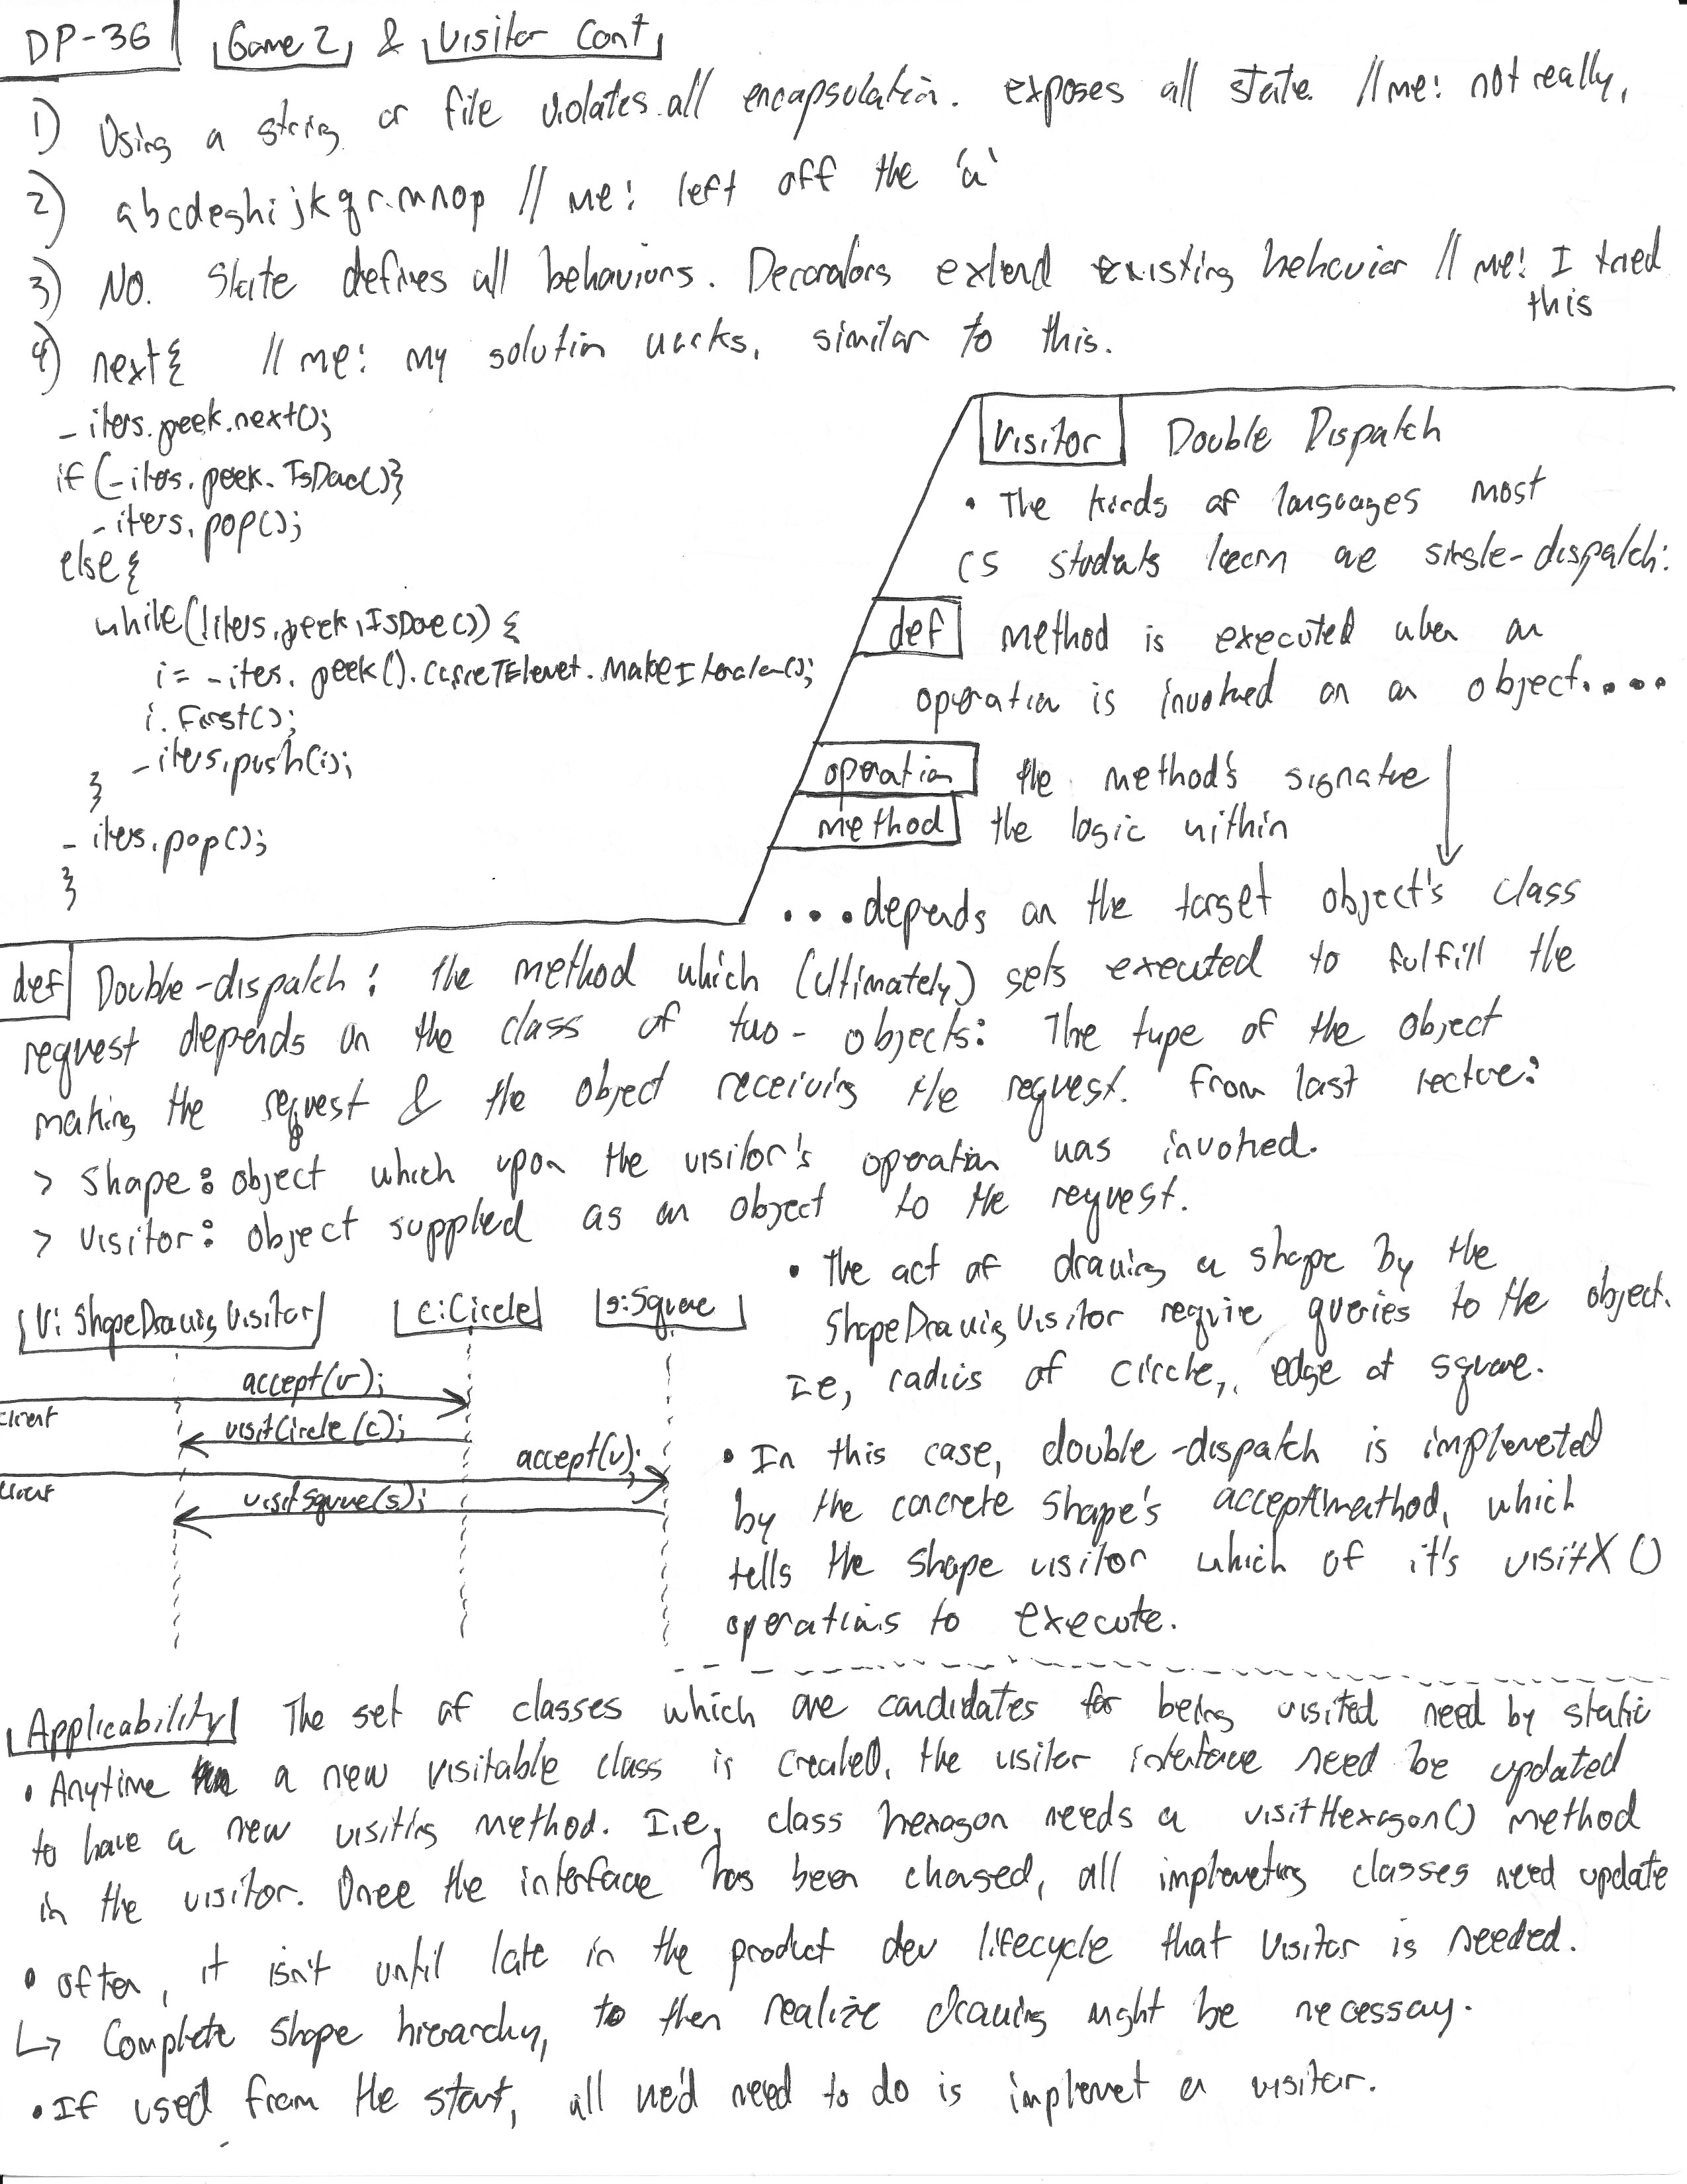 DP-36 Game 2 & Visitor Cont
1) Using a string or file violates all encapsulation. exposes all state. // me: not really,
2) abcdeghijkqr.mnop // me: left off the 'a'
3) No. State defines all behaviors. Decorators extend existing behavior // me: I tried
this
4) next{ // me: my solution works, similar to this.
_iters.peek.next();
if (_iters.peek.IsDone()}
_iters.pop();
else {
while(!iters.peek.IsDone()) {
i = _iters.peek().
i.First();
_iters.push(i);
}
_iters.pop();
}
Visitor Double Dispatch
• The kinds of languages most
CS students learn are single-dispatch:
def method is executed when an
operation is invoked on an object....
operation the method's signature
method the logic within
...depends on the target object's class
def Double-dispatch: the method which (ultimately) gets executed to fulfill the
request depends on the class of two- objects: The type of the object
making the request & the object receiving the request. From last lecture:
> Shape: object which upon the visitor's operation was invoked.
> Visitor: object supplied as an object to the request.
v: ShapeDrawingVisitor c:Circle s:Square
accept(v);
client
visitCircle(c);
accept(v);
client
visitSquare(s);
• The act of drawing a shape by the
ShapeDrawingVisitor require queries to the object.
I.e, radius of circle, edge of square.
• In this case, double-dispatch is implemented
by the concrete shape's accept() method, which
tells the shape visitor which of it's visitX()
operations to execute.
Applicability The set of classes which are candidates for being visited need by static
• Anytime a new visitable class is created, the visitor interface need be updated
to have a new visiting method. I.e, class hexagon needs a visitHexagon() method
in the visitor. Once the interface has been changed, all implementing classes need update
• often, it isn't until late in the product dev lifecycle that Visitor is needed.
↳ Complete shape hierarchy, to then realize drawing might be necessary.
• If used from the start, all we'd need to do is implement a visitor.